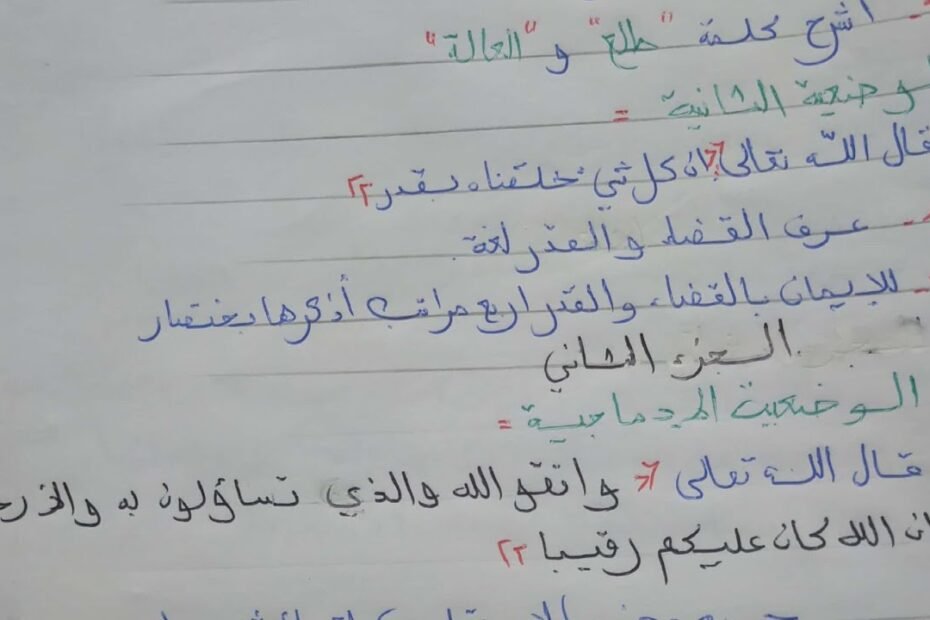 - اشرح كلمة "طلع" و "العالة"
وضعية الثانية =
قال الله تعالى "ان كل شيء خلقناه بقدر"
- عرف القضاء والقدر لغة.
- للإيمان بالقضاء والقدر اربع مراتب أذكرها بختصار
الجزء الثاني
الوضعيت الإدماجية =
قال الله تعالى " واتقو الله والذي تساؤلون به والأرح
ان الله كان عليكم رقيبا "